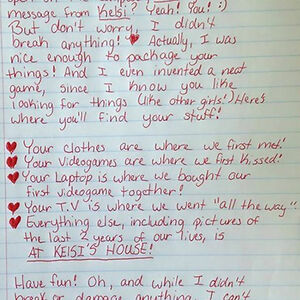 message from Kelsi? Yeah! You! :)
But don't worry, I didn't
break anything! Actually, I was
nice enough to package your
things! And I even invented a neat
game, since I know you like
looking for things (like other girls!) Here's
where you'll find your stuff!
Your clothes are where we first met!
Your Videogames are where we first kissed!
Your Laptop is where we bought our
first videogame together!
Your T.V is where we went "all the way".
Everything else, including pictures of
the last 2 years of our lives, is
AT KELSI'S HOUSE!
Have fun! Oh, and while I didn't
break or damage anything, I can't